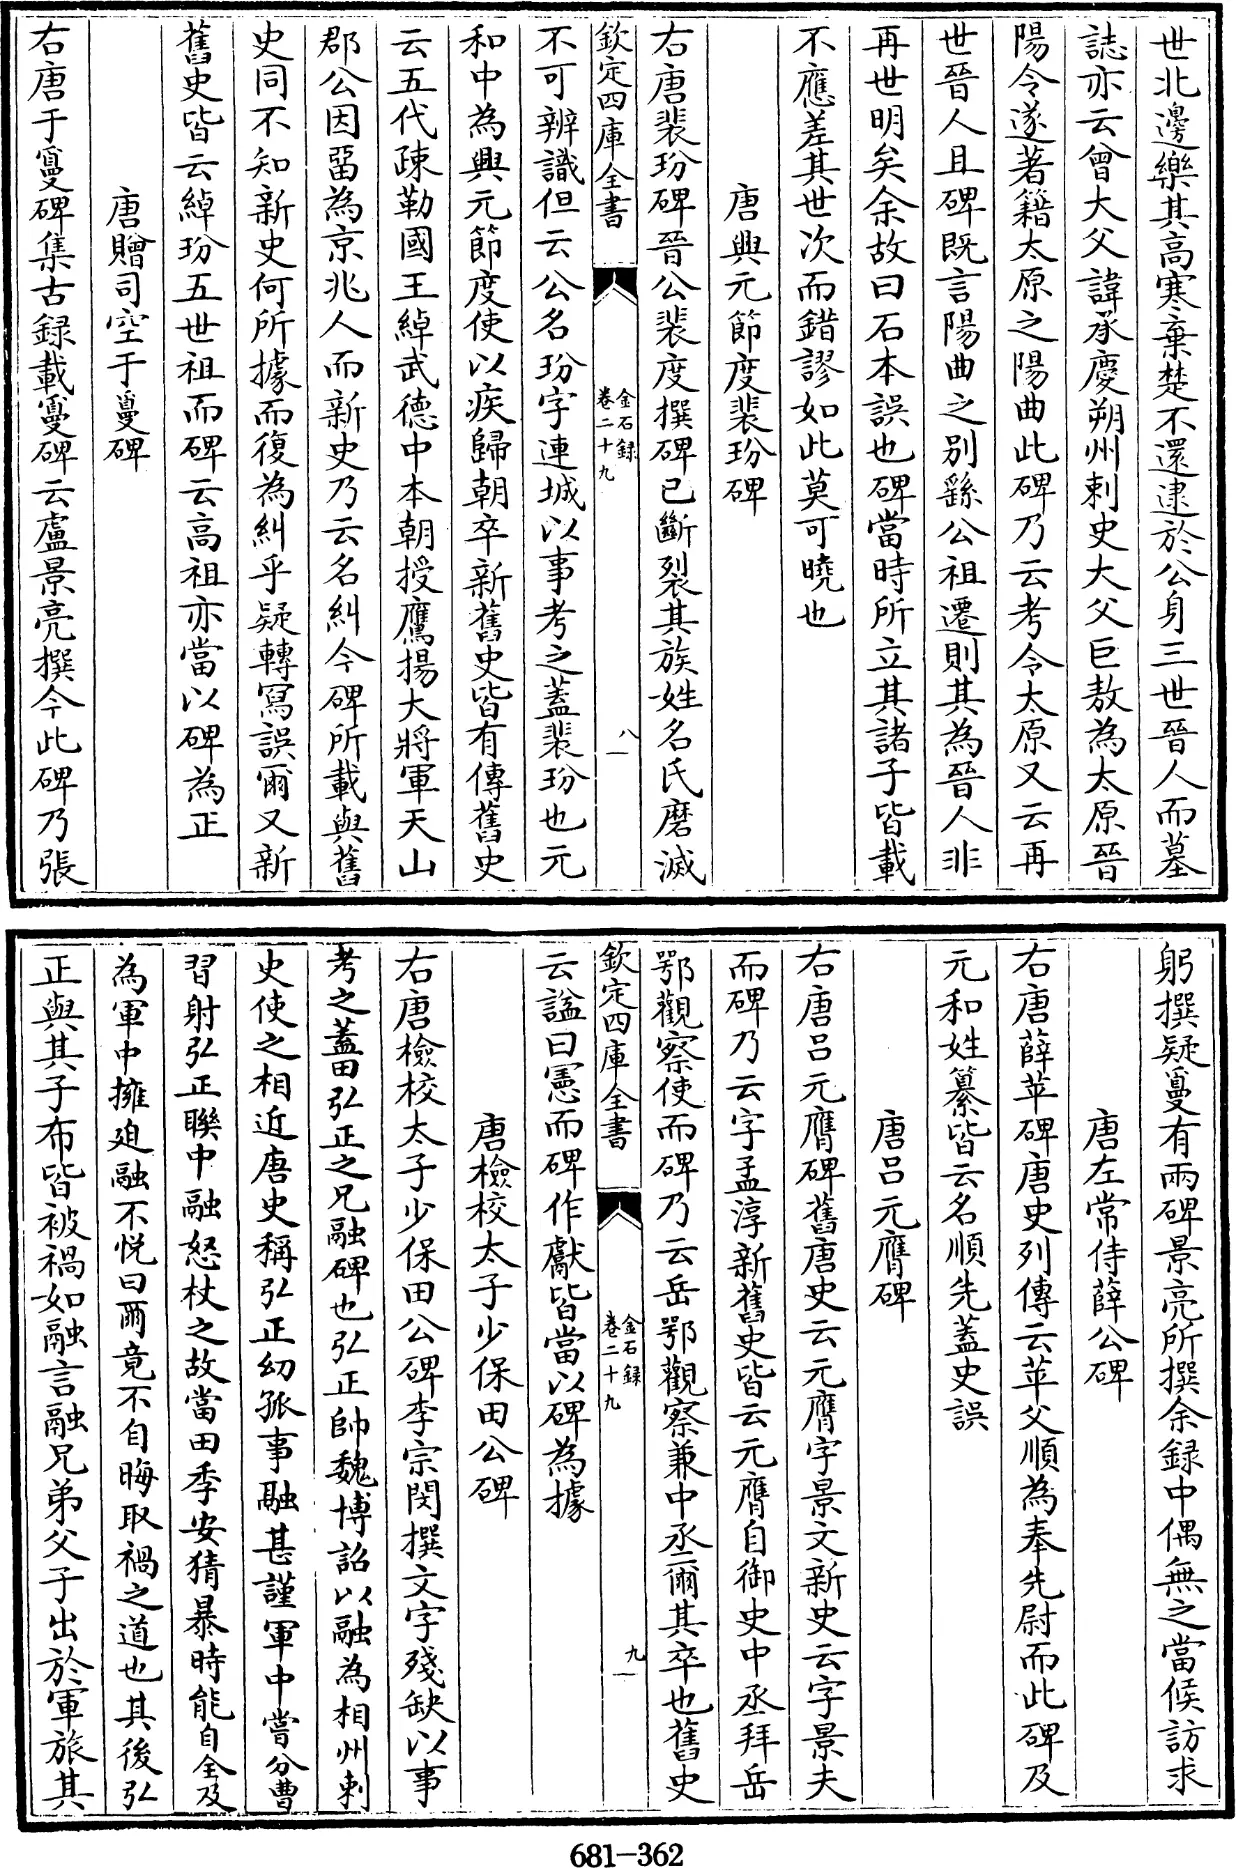 世北邊樂其高寒棄楚不還逮於公身三世晉人而墓
誌亦云曾大父諱承慶朔州刺史大父巨敖為太原晉
陽令遂著籍太原之陽曲此碑乃云考令太原又云再
世晉人且碑既言陽曲之别繇公祖遷則其為晉人非
再世明矣余故曰石本誤也碑當時所立其諸子皆載
不應差其世次而錯謬如此莫可曉也
唐興元節度裴玢碑
右唐裴玢碑晉公裴度撰碑已斷裂其族姓名氏磨滅
欽定四庫全書
金石録
卷二十九
八
不可辨識但云公名玢字連城以事考之蓋裴玢也元
和中為興元節度使以疾歸朝卒新舊史皆有傳舊史
云五代疎勒國王綽武德中本朝授鷹揚大將軍天山
郡公因留為京兆人而新史乃云名糾今碑所載與舊
史同不知新史何所據而復為糾乎疑轉寫誤爾又新
舊史皆云綽玢五世祖而碑云高祖亦當以碑為正
唐贈司空于敻碑
右唐于敻碑集古録載敻碑云盧景亮撰今此碑乃張
躬撰疑敻有兩碑景亮所撰余録中偶無之當候訪求
唐左常侍薛公碑
右唐薛苹碑唐史列傳云苹父順為奉先尉而此碑及
元和姓纂皆云名順先蓋史誤
唐呂元膺碑
右唐呂元膺碑舊唐史云元膺字景文新史云字景夫
而碑乃云字孟淳新舊史皆云元膺自御史中丞拜岳
鄂觀察使而碑乃云岳鄂觀察兼中丞爾其卒也舊史
欽定四庫全書
金石録
卷二十九
九
云謚曰憲而碑作獻皆當以碑為據
唐檢校太子少保田公碑
右唐檢校太子少保田公碑李宗閔撰文字殘缺以事
考之蓋田弘正之兄融碑也弘正帥魏博詔以融為相州刺
史使之相近唐史稱弘正幼孤事融甚謹軍中嘗分曹
習射弘正聯中融怒杖之故當田季安猜暴時能自全及
為軍中擁廹融不悦曰爾竟不自晦取禍之道也其後弘
正與其子布皆被禍如融言融兄弟父子出於軍旅其
681-362